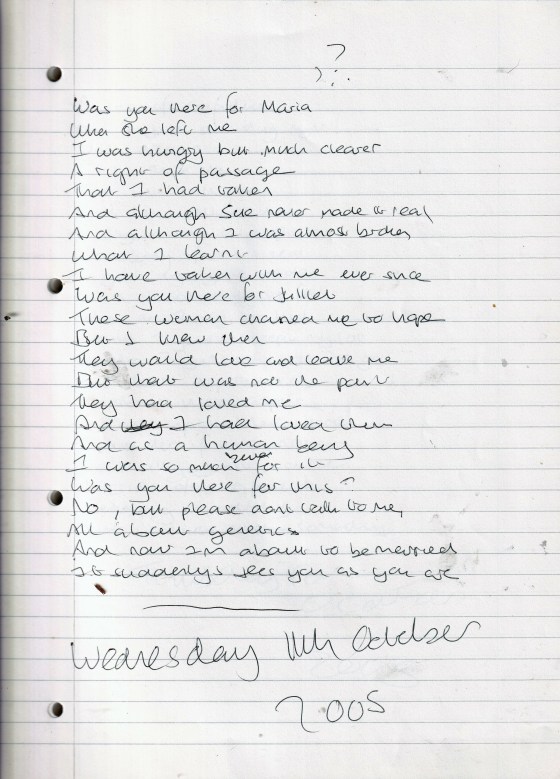 ?
Was you there for Maria
When She left me
I was hungry but much clearer
A right of passage
That I had taken
And although Sue never made it real
And although I was almost broken
What I learnt
I have taken with me ever since
Was you there for
These woman chained me to hope
But I knew then
They would love and leave me
But that was not the point
They had loved me
And they I had loved them
And as a human being
I was so much better for it
Was you there for this?
No, but please dont talk to me,
All about genetics
And now I'm about to be married
It suddenly sees you as you are
Wednesday 11th October
2005